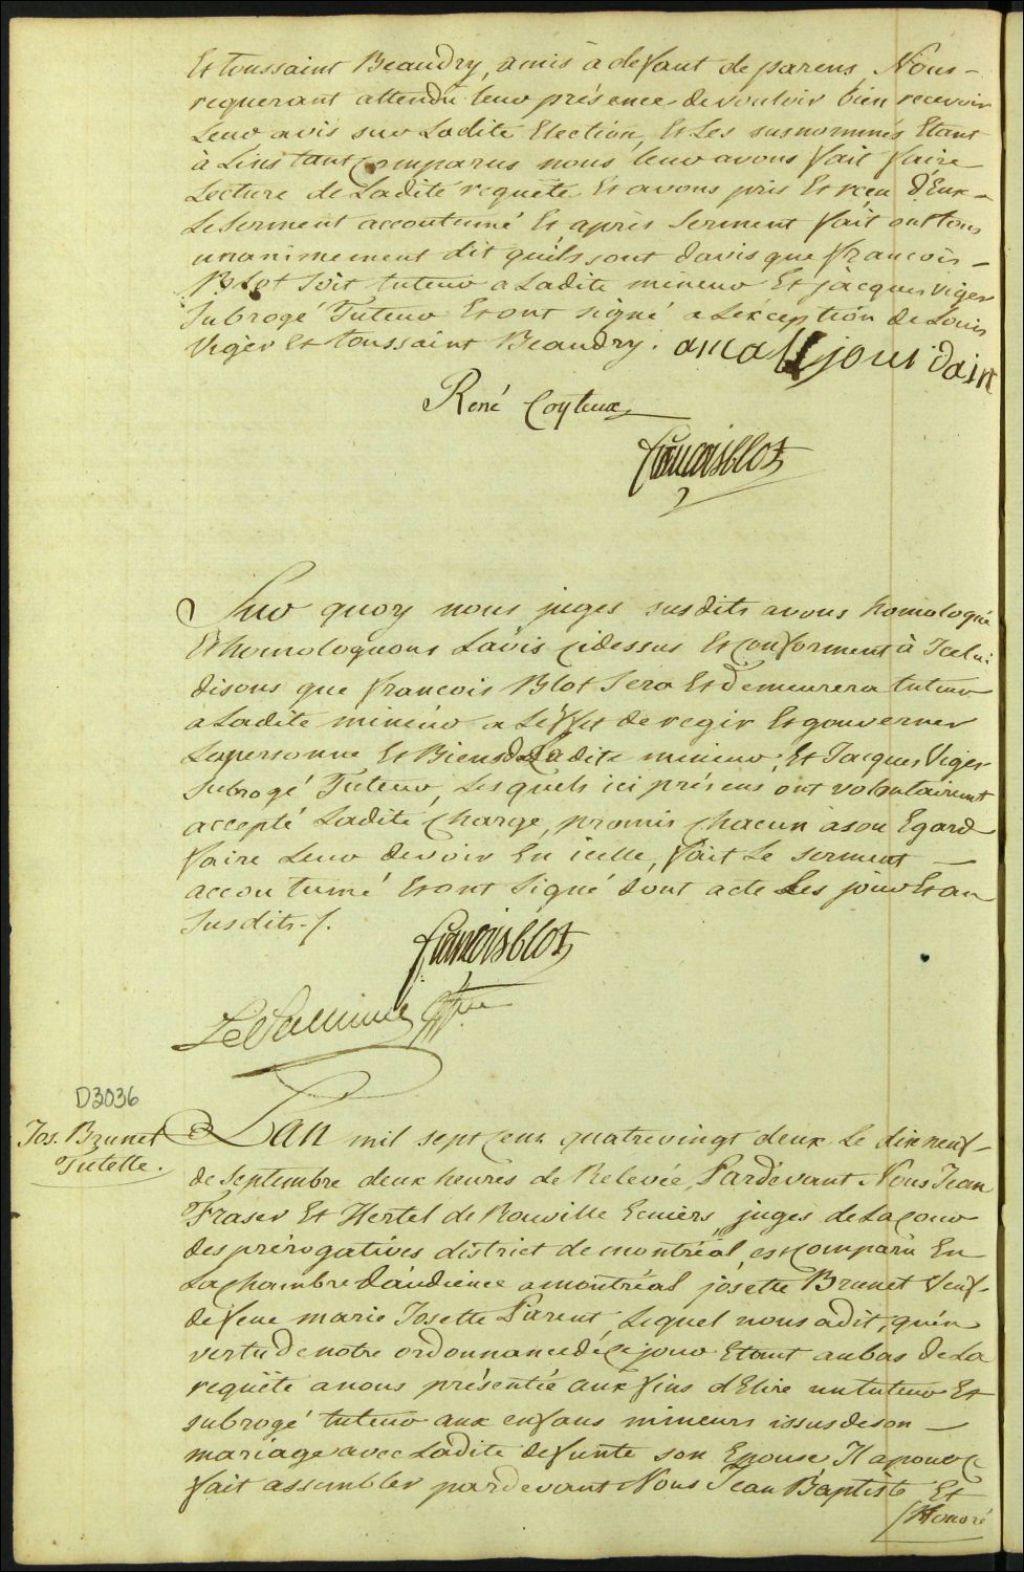 Et Toussaint Beaudry, amis à defaut de parens, Nous -
requerant attendu leur présence de vouloir bien recevoir
Leur avis sur Ladite Election, Et Les susnommés Etant
à Linstant Comparus nous leur avons fait faire
Lecture de Ladite requête Et avons pris Et reçu d'Eux -
Le Serment accoutumé Et après Serment fait ont tous
unanimement dit quils sont davis que francois -
Blot Soit tuteur a Ladite mineur Et jacques Viger
Subrogé Tuteur Et ont signé a Léxception de Louis
Viger Et Toussaint Beaudry. amable jourdain
René Coyteux
francois blot
Sur quoy nous juges susdits avons homologué
Et homologuons Lavis cidessus Et Conforment à Icelui
disons que francois Blot Sera Et demeurera tuteur
a Ladite mineur a Léffet de regir Et gouverner
Lapersonne Et Biens de Ladite mineur, Et Jacques Viger
Subrogé Tuteur, Lesquels ici présens ont volontairement
accepté Ladite Charge, promis chacun à son Egard
faire Leur devoir En icelle, fait Le serment -
accoutumé Et ont Signé dont acte Les jour Et an
Susdits./.
francois blot
D3036
Jos. Brunet
Tutelle.
Lan mil sept Cent quatrevingt deux Le dixneuf -
de Septembre deux heures de Relevée, Pardevant Nous Jean
Fraser Et Hertel de Rouville Ecuiers, juges de La Cour
des prérogatives district de montréal, est Comparu En
La chambre Daudience a montréal josette Brunet Veuf -
de feue marie Josette Parent, Lequel nous a dit, quén
vertu de notre ordonnance de Ce jour Etant au bas de La
requête a nous présentée aux fins dElire un tuteur Et
subrogé tuteur aux enfans mineurs issus de son -
mariage avec Ladite defunte son Epouse, Il a pour Ce
fait assembler pardevant Nous Jean Baptiste Et
/Honoré